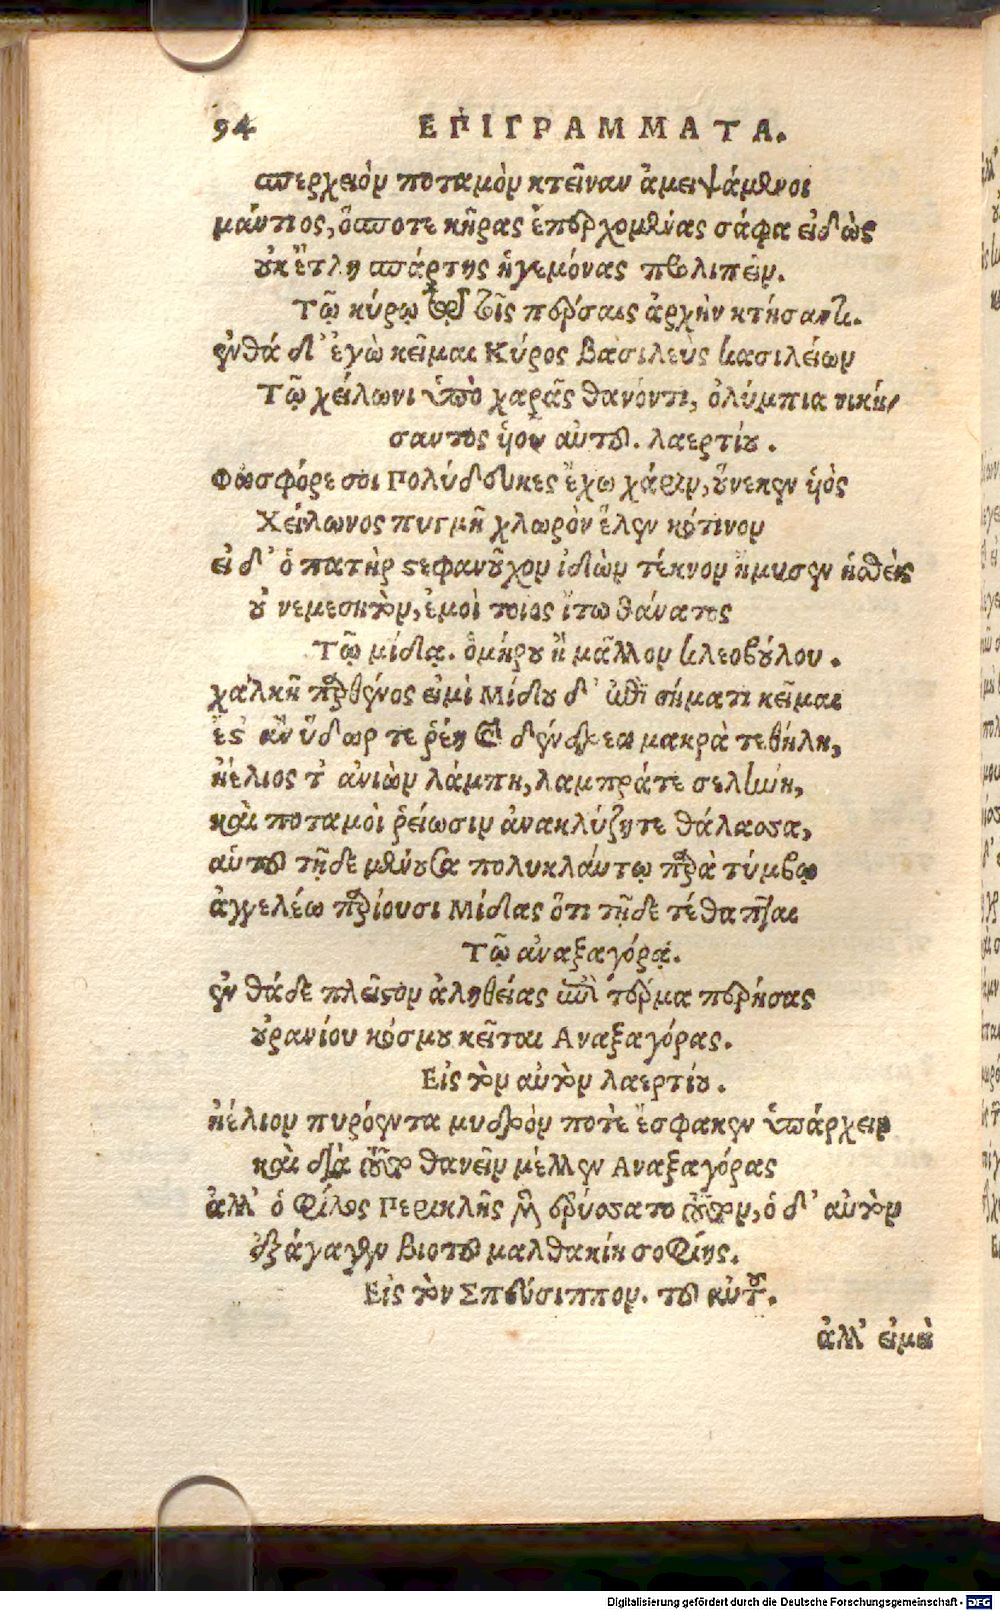 94 ΕΠΙΓΡΑΜΜΑΤΑ.
σπερχειὸν ποταμὸν κτεῖναν ἀμειψάμενοι
μάντιος, ὅπποτε κῆρας ἐπερχομένας σάφα εἰδὼς
οὐκ ἔτλη σπάρτης ἡγεμόνας προλιπεῖν.
Τῷ κύρῳ τῷ τοῖς πέρσαις ἀρχὴν κτήσαντι.
ἐνθά δ' ἐγὼ κεῖμαι Κύρος βασιλεὺς βασιλείων
Τῷ χείλωνι ὑπὸ χαρᾶς θανόντι, ὀλύμπια νική/
σαντος ὑοῦ αὐτοῦ. λαερτίου.
Φωσφόρε σοι Πολύδευκες ἔχω χάριν, οὕνεκεν ὑὸς
Χείλωνος πυγμῇ χλωρὸν ἕλεν κότινον
εἰ δ' ὁ πατὴρ στεφανοῦχον ἰδὼν τέκνον ἤμυσεν ἡσθεὶς
οὐ νεμεσητὸν, ἐμοὶ τοιος ἴτω θάνατος
Τῷ μίδᾳ. ὁμήρου ἢ μᾶλλον κλεοβούλου.
χαλκῆ παρθένος εἰμὶ Μίδου δ' ἐπὶ σήματι κεῖμαι
ἔστ' ἂν ὕδωρ τε ῥέῃ καὶ δένδρεα μακρὰ τεθήλῃ,
ἠέλιος τ' ἀνιὼν λάμπῃ, λαμπράτε σελήνη,
καὶ ποταμοὶ ῥείωσιν ἀνακλύζῃτε θάλασσα,
αὑτοῦ τῇδε μένουσα πολυκλάυτῳ παρὰ τύμβῳ
ἀγγελέω παριοῦσι Μίδας ὅτι τῇδε τέθαπται
Τῷ ἀναξαγόρᾳ.
ἐνθάδε πλεῖστον ἀληθείας ἐπὶ τέρμα περήσας
οὐρανίου κόσμου κεῖται Αναξαγόρας.
Εἰς τὸν αὐτὸν λαερτίου.
ἠέλιον πυρόεντα μυδρόν ποτὲ ἔσφακεν ὑπάρχειν
καὶ διὰ τοῦτο θανεῖν μέλλεν Αναξαγόρας
ἀλλ' ὁ φίλος Περικλῆς μὲν ἐρύσσατο τοῦτον, ὁ δ' αὐτὸν
ἐξάγαγεν βιοτοῦ μαλθακίῃ σοφίης.
Εἰς τὸν Σπεύσιππον. τοῦ αὐτοῦ.
ἀλλ' εἰμὲ
Digitalisierung gefördert durch die Deutsche Forschungsgemeinschaft - DFG